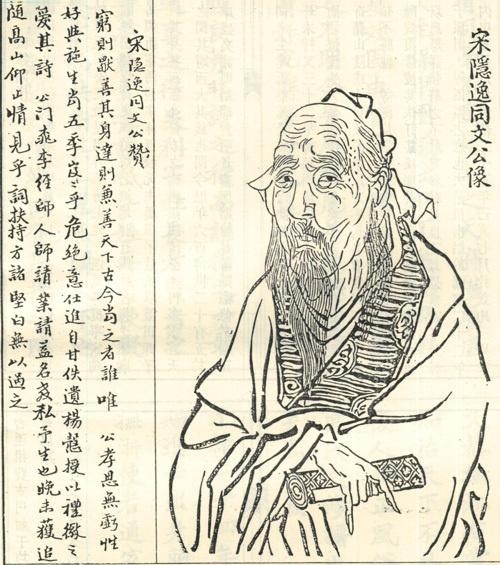 宋隱逸同文公像
宋隱逸同文公贊
窮則獨善其身達則兼善天下古今當之者誰唯 公孝思無虧性
好與施生當五季岌岌乎危絕意仕進自甘佚遺楊 授以禮徵之
愛其詩 公門桃李經師人師請業請益名 私予生也晚未獲追
隨高山仰止情見乎詞扶持方諸堅白無以過之